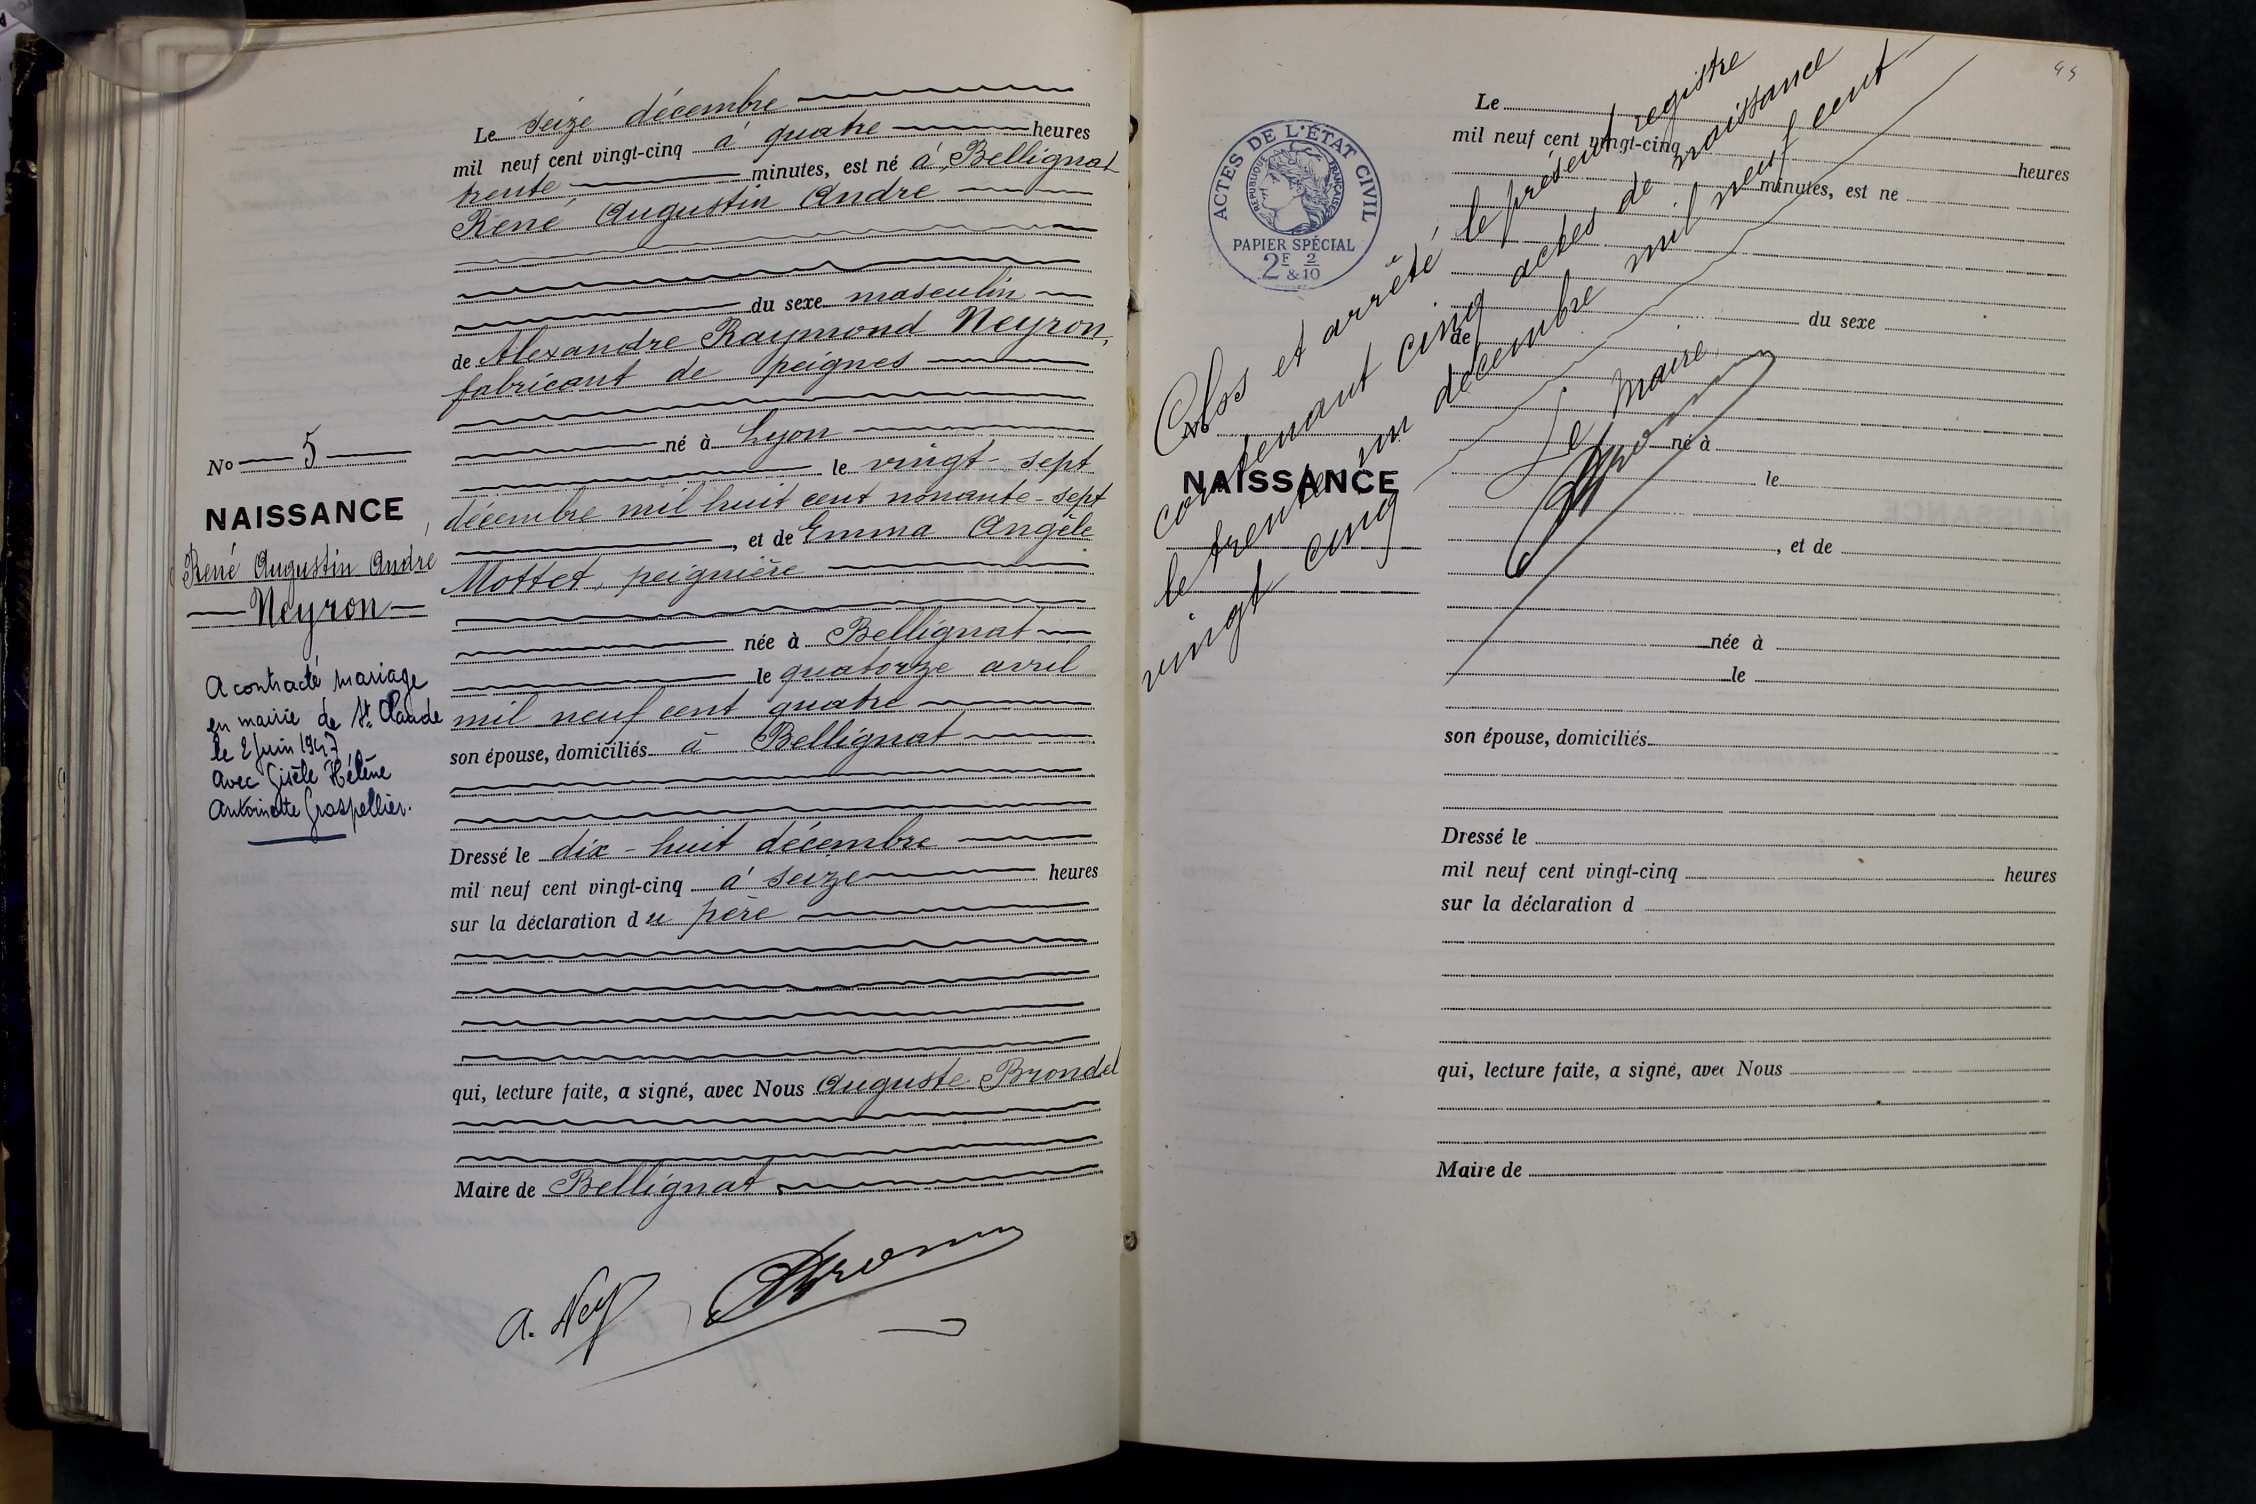 Le seize décembre
mil neuf cent vingt-cinq à quatre heures
trente minutes, est né à Bellignat
René Augustin André
du sexe masculin
de Alexandre Raymond Neyron,
fabricant de peignes
né à Lyon
le vingt-sept
décembre mil huit cent nonante-sept
, et de Emma Angèle
Mottet, peignière
née à Bellignat
le quatorze avril
mil neuf cent quatre
son épouse, domiciliés à Bellignat
Dressé le dix-huit décembre
mil neuf cent vingt-cinq à seize heures
sur la déclaration du père
qui, lecture faite, a signé, avec Nous Auguste Brondel
Maire de Bellignat
A. Ney
No 5
NAISSANCE
René Augustin André
Neyron
A contracté mariage
en mairie de St. Claude
le 2 Juin 1947
avec Gisèle Hélène
Antoinette Graspellier.
44
ACTES DE L'ÉTAT CIVIL
RÉPUBLIQUE FRANÇAISE
PAPIER SPÉCIAL
2F 2
&10
Clos et arrêté le présent registre
contenant cinq actes de naissance
le trente un décembre mil neuf cent
vingt cinq
Le Maire,
Le
mil neuf cent vingt-cinq
heures
minutes, est né
du sexe
de
No
né à
NAISSANCE
le
, et de
née à
le
son épouse, domiciliés
Dressé le
mil neuf cent vingt-cinq heures
sur la déclaration d
qui, lecture faite, a signé, avec Nous
Maire de